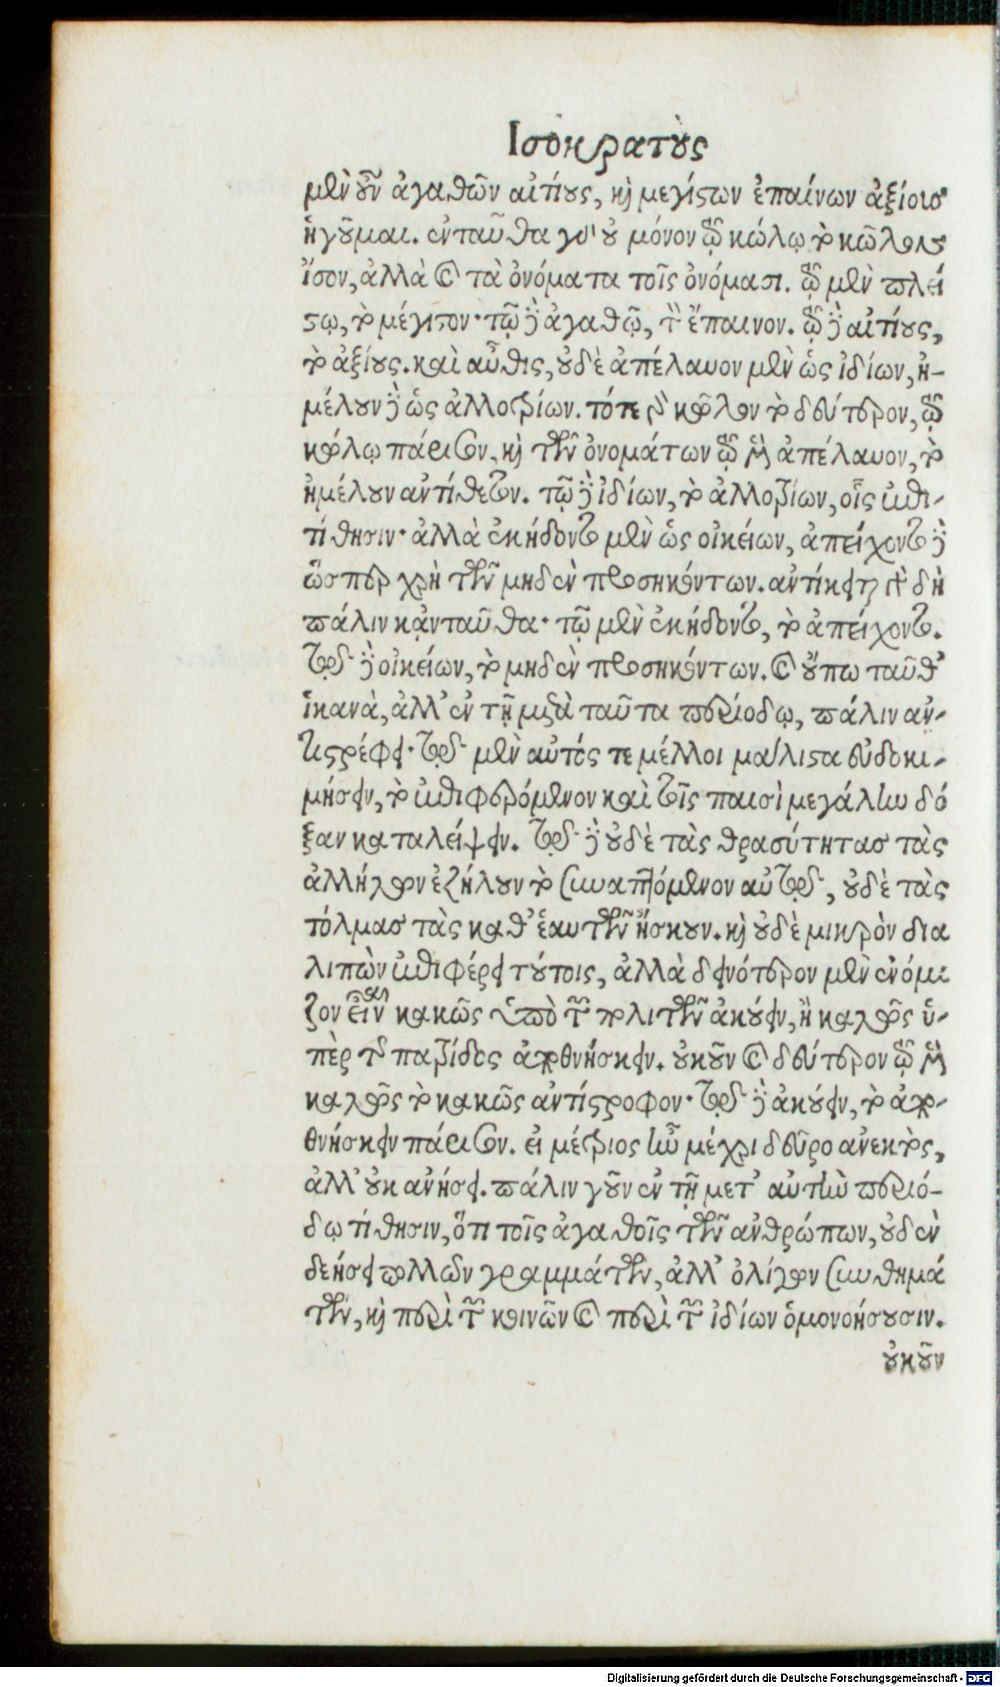 Ισοκράτους
μὲν οὖν ἀγαθῶν αἰτίους, καὶ μεγίστων ἐπαίνων ἀξίους
ἡγοῦμαι. ἐνταῦθα γὰρ οὐ μόνον τῷ κώλῳ τὸ κῶλον
ἴσον, ἀλλὰ καὶ τὰ ὀνόματα τοῖς ὀνόμασι. τῷ μὲν πλεί
στῳ, τὸ μέγιστον· τῷ δὲ ἀγαθῷ, τὸν ἔπαινον. τῷ δὲ αἰτίους,
τὸ ἀξίους. καὶ αὖθις, οὐδὲ ἀπέλαυον μὲν ὡς ἰδίων, ἠ-
μέλουν δὲ ὡς ἀλλοτρίων. τό τε γὰρ κῶλον τὸ δεύτερον, τῷ
κώλῳ πάρισον, καὶ τῶν ὀνομάτων τῷ μὲν ἀπέλαυον, τὸ
ἠμέλουν ἀντίθετον. τῷ δὲ ἰδίων, τὸ ἀλλοτρίων, οἷς ἐπι-
τίθησιν· ἀλλὰ ἐκήδοντο μὲν ὡς οἰκείων, ἀπείχοντο δὲ
ὥσπερ χρὴ τῶν μηδὲν προσηκόντων. ἀντίκειται γὰρ δὴ
πάλιν κἀνταῦθα· τῷ μὲν ἐκήδοντο, τὸ ἀπείχοντο.
τῷ δὲ οἰκείων, τὸ μηδὲν προσηκόντων. καὶ οὔπω ταῦθ'
ἱκανὰ, ἀλλ' ἐν τῇ μετὰ ταῦτα περιόδῳ, πάλιν ἀν-
τιστρέφει· τῷ μὲν αὐτός τε μέλλοι μάλιστα εὐδοκι-
μήσειν, τὸ ἐπιφερόμενον καὶ τοῖς παισὶ μεγάλην δό
ξαν καταλείψειν. τῷ δὲ οὐδὲ τὰς θρασύτητας τὰς
ἀλλήλων ἐζήλουν τὸ συναπτόμενον αὐτῷ, οὐδὲ τὰς
τόλμας τὰς καθ' ἑαυτῶν ἤσκουν. καὶ οὐδὲ μικρὸν δια
λιπὼν ἐπιφέρει τούτοις, ἀλλὰ δεινότερον μὲν ἐνόμι
ζον εἶναι κακῶς ὑπὸ τῶν πολιτῶν ἀκούειν, ἢ καλῶς ὑ-
πὲρ τῆς πατρίδος ἀποθνήσκειν. οὐκοῦν καὶ δεύτερον τῷ μὲν
καλῶς τὸ κακῶς ἀντίστροφον· τῷ δὲ ἀκούειν, τὸ ἀπο-
θνήσκειν πάρισον. εἰ μέτριος ἦν μέχρι δεῦρο ἀνεκτὸς,
ἀλλ' οὐκ ἀνήσει. πάλιν γοῦν ἐν τῇ μετ' αὐτὴν περιό-
δῳ τίθησιν, ὅτι τοῖς ἀγαθοῖς τῶν ἀνθρώπων, οὐδὲν
δεήσει πολλῶν γραμμάτων, ἀλλ' ὀλίγων συνθημά
των, καὶ περὶ τῶν κοινῶν καὶ περὶ τῶν ἰδίων ὁμονοήσουσιν.
οὐκοῦν
Digitalisierung gefördert durch die Deutsche Forschungsgemeinschaft - DFG